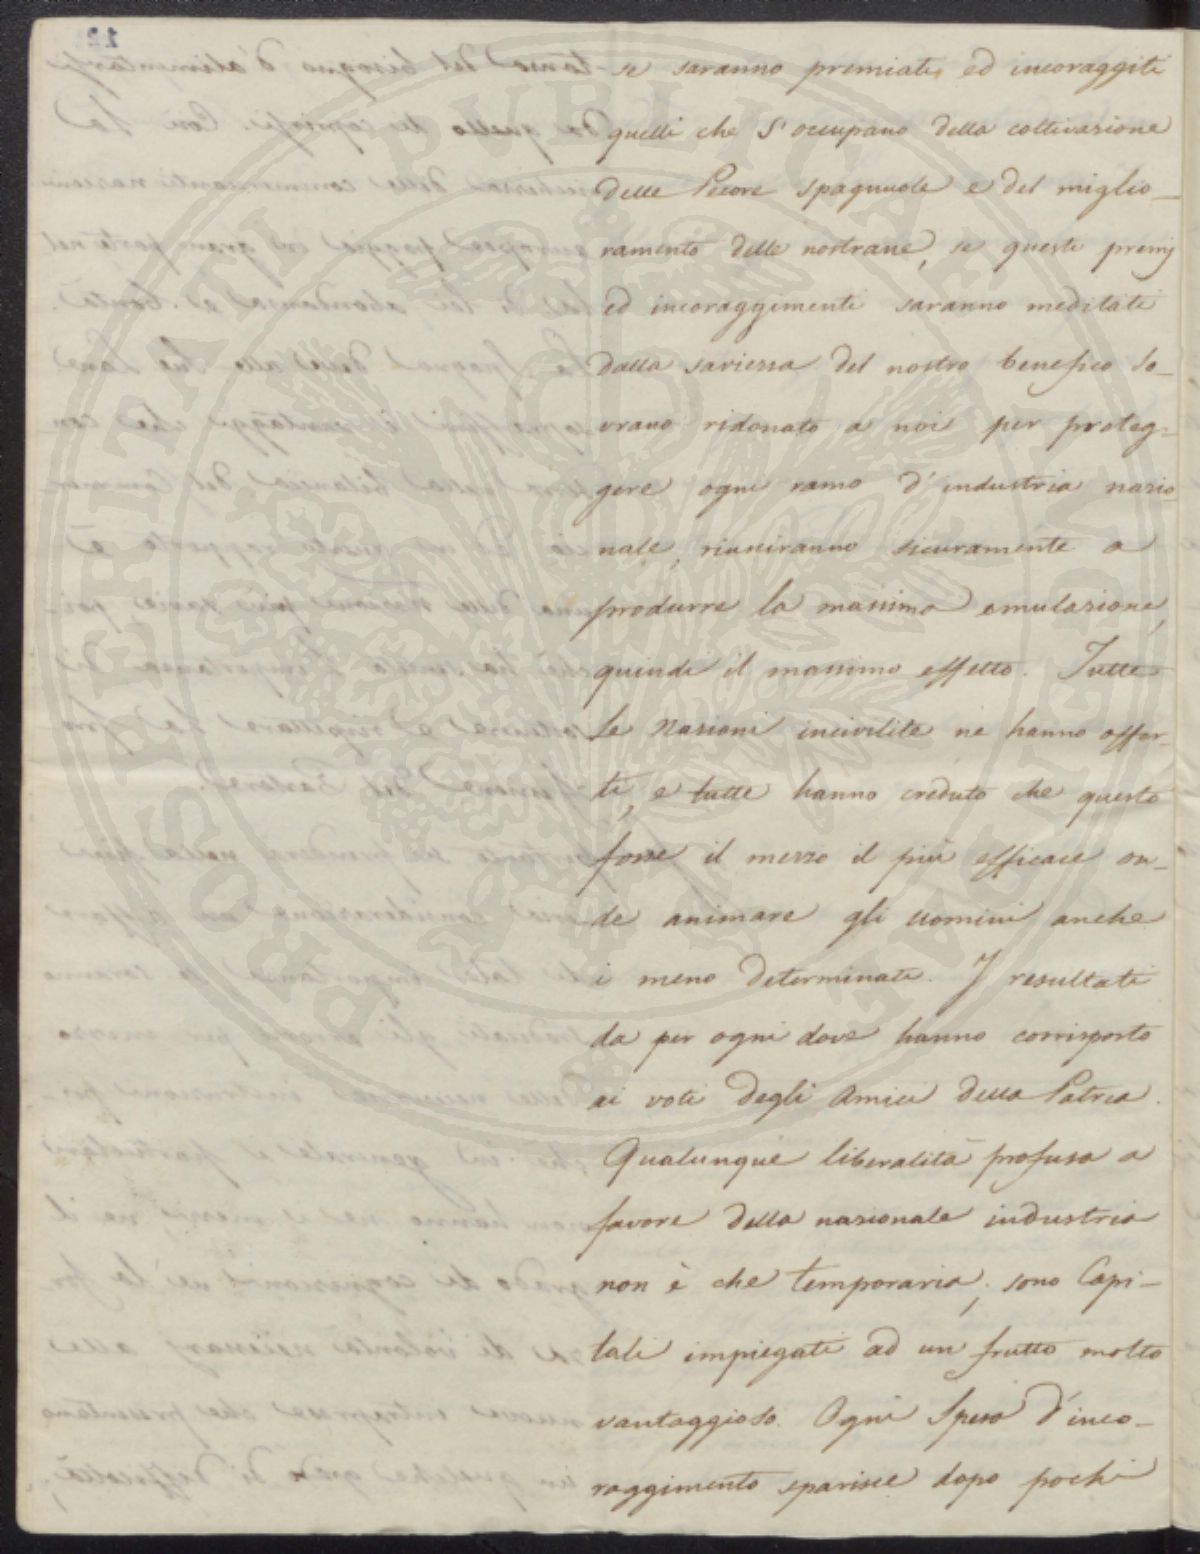 se saranno premiati, ed incoraggiti
quelli che s'occupano della coltivazione
delle Pecore spagnuole e del miglio-
ramento delle nostrane, se questi premj
ed incoraggimenti saranno meditati
dalla saviezza del nostro benefico So-
vrano ridonato a noi per proteg-
gere ogni ramo d'industria nazio-
nale, riusciranno sicuramente a
produrre la massima emulazione,
quindi il massimo effetto. Tutte
le Nazioni incivilite ne hanno offer-
ti, e tutte hanno creduto che questo
fosse il mezzo il più efficace on-
de animare gli uomini anche
i meno determinati. I resultati
da per ogni dove hanno corrisposto
ai voti degli Amici della Patria.
Qualunque liberalità profusa a
favore della nazionale industria
non è che temporaria; sono Capi-
tali impiegati ad un frutto molto
vantaggioso. Ogni Spesa d'inco-
raggimento sparisce dopo pochi